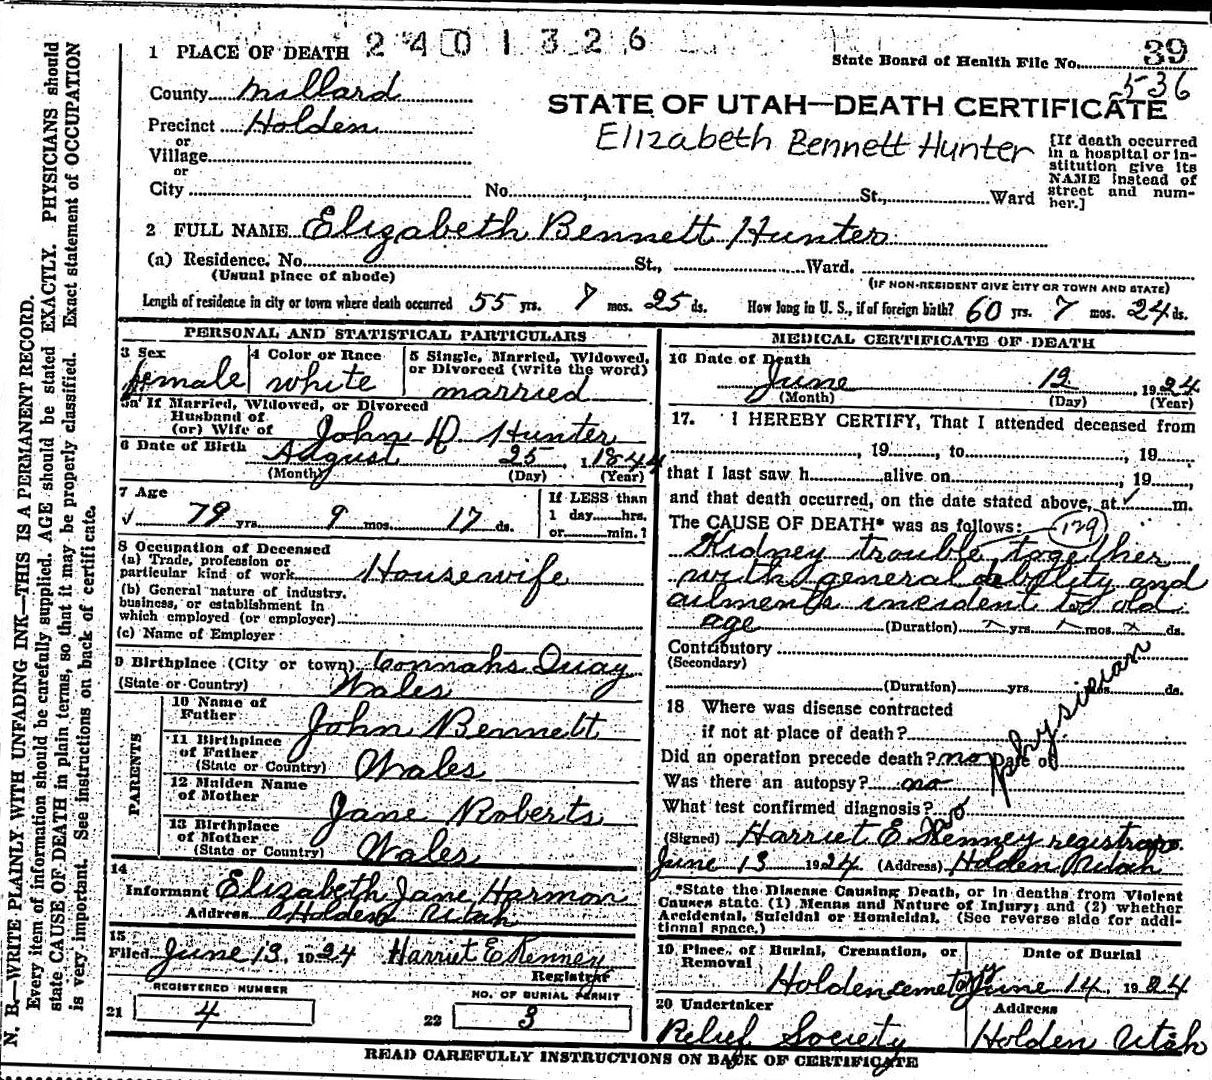 2401326
39
1 PLACE OF DEATH
State Board of Health File No.
536
County Millard
STATE OF UTAH—DEATH CERTIFICATE
Precinct Holden
Elizabeth Bennett Hunter
or
Village
or
City No. St., Ward
[If death occurred
in a hospital or in-
stitution give its
NAME instead of
street and num-
ber.]
2 FULL NAME Elizabeth Bennett Hunter
(a) Residence. No. St., Ward.
(Usual place of abode)
(IF NON-RESIDENT GIVE CITY OR TOWN AND STATE)
Length of residence in city or town where death occurred 55 yrs. 7 mos. 25 ds. How long in U. S., if of foreign birth? 60 yrs. 7 mos. 24 ds.
PERSONAL AND STATISTICAL PARTICULARS
3 Sex
female
4 Color or Race
white
5 Single, Married, Widowed,
or Divorced (write the word)
married
5a If Married, Widowed, or Divorced
Husband of
(or) Wife of John D Hunter
6 Date of Birth August 25, 1844
(Month) (Day) (Year)
7 Age
79 yrs. 9 mos. 17 ds.
If LESS than
1 day hrs.
or min.?
8 Occupation of Deceased
(a) Trade, profession or
particular kind of work Housewife
(b) General nature of industry,
business, or establishment in
which employed (or employer)
(c) Name of Employer
9 Birthplace (City or town) Connahs Quay
(State or Country) Wales
PARENTS
10 Name of
Father John Bennett
11 Birthplace
of Father
(State or Country) Wales
12 Maiden Name
of Mother Jane Roberts
13 Birthplace
of Mother
(State or Country) Wales
14
Informant Elizabeth Jane Harmon
Address Holden Utah
15
Filed June 13, 1924 Harriet E Kenney
Registrar
REGISTERED NUMBER
21 4
NO. OF BURIAL PERMIT
22 3
MEDICAL CERTIFICATE OF DEATH
16 Date of Death
June 12, 1924
(Month) (Day) (Year)
17. I HEREBY CERTIFY, That I attended deceased from
, 19 , to , 19
that I last saw h alive on , 19 ,
and that death occurred, on the date stated above, at m.
The CAUSE OF DEATH* was as follows: 129
Kidney trouble together
with general debility and
ailments incident to old
age (Duration) yrs. mos. ds.
Contributory
(Secondary)
(Duration) yrs. mos. ds.
18 Where was disease contracted
if not at place of death?
Did an operation precede death? no Date of
Was there an autopsy? no
What test confirmed diagnosis?
no physician
(Signed) Harriet E Kenney registrar
June 13 1924 (Address) Holden Utah
*State the Disease Causing Death, or in deaths from Violent
Causes state (1) Means and Nature of Injury; and (2) whether
Accidental, Suicidal or Homicidal. (See reverse side for addi-
tional space.)
19 Place of Burial, Cremation, or
Removal
Holden cemetery
Date of Burial
June 14, 1924
20 Undertaker
Relief Society
Address
Holden Utah
READ CAREFULLY INSTRUCTIONS ON BACK OF CERTIFICATE
N. B.—WRITE PLAINLY WITH UNFADING INK—THIS IS A PERMANENT RECORD.
Every item of information should be carefully supplied. AGE should be stated EXACTLY. PHYSICIANS should
state CAUSE OF DEATH in plain terms, so that it may be properly classified. Exact statement of OCCUPATION
is very important. See instructions on back of certificate.